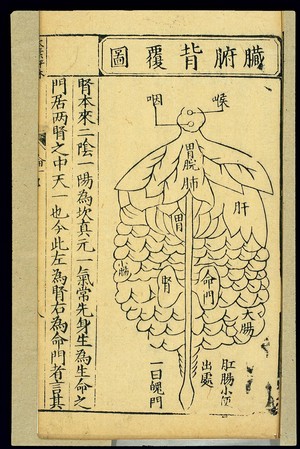 臟腑背覆圖
喉
咽
胃脘
肺
肝
胃
小腸
腎
命門
大腸
肛腸小便
出處
一曰魄門
腎本來二陰一陽為坎真元一氣常先身生為生命之
門居两腎之中天一也今此左為腎右為命門者言其